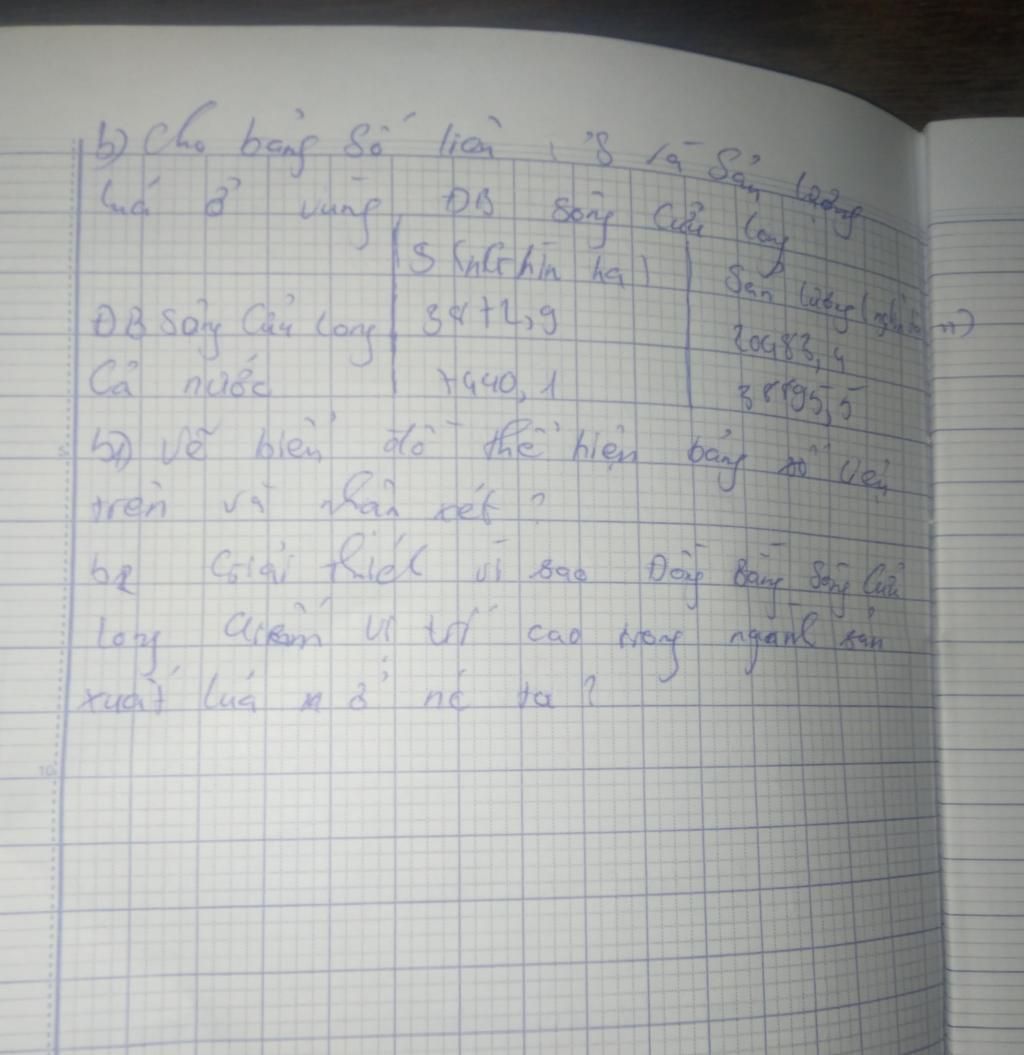 b) Cho bảng số liệu : S và Sản lượng
lúa ở vùng ĐB sông Cửu long
S (nghìn ha) Sản lượng (nghìn tấn)
ĐB Sông Cửu Long 20483,4
Cả nước 7440,1
b1) vẽ biểu đồ thể hiện bảng số liệu
trên và nhận xét ?
b2 Giải thích vì sao Đồng Bằng Sông Cửu
Long chiếm vị trí cao trong ngành sản
xuất lúa ở nc ta ?